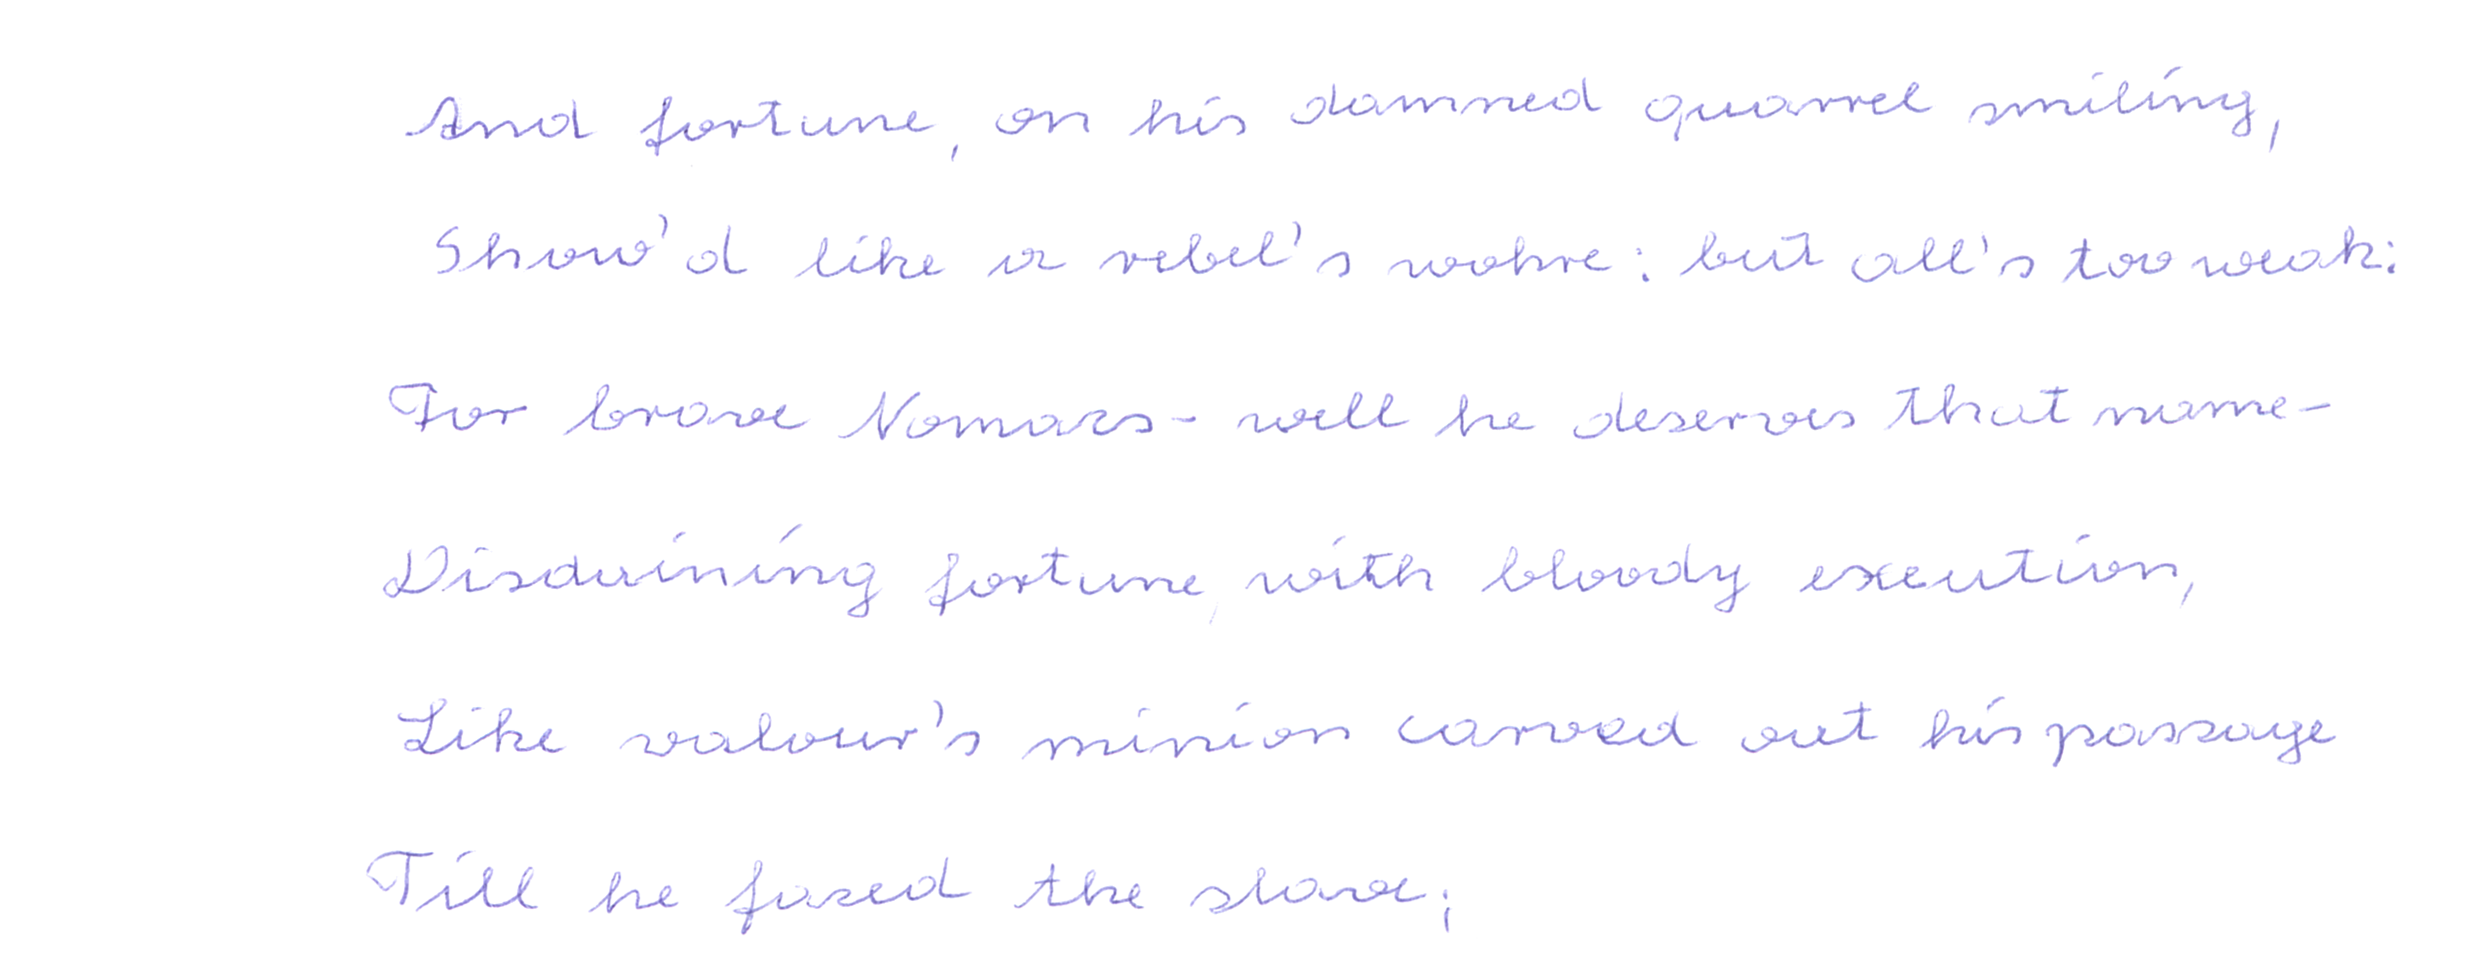 And fortune, on his damned quarrel smiling,
Show'd like a rebel's wohre: but all's too weak:
For brave Nomazs - well he deserves that name -
Disdaining fortune, with bloody exeution,
Like valour's minion carved out his passage
Till he fased the slave;